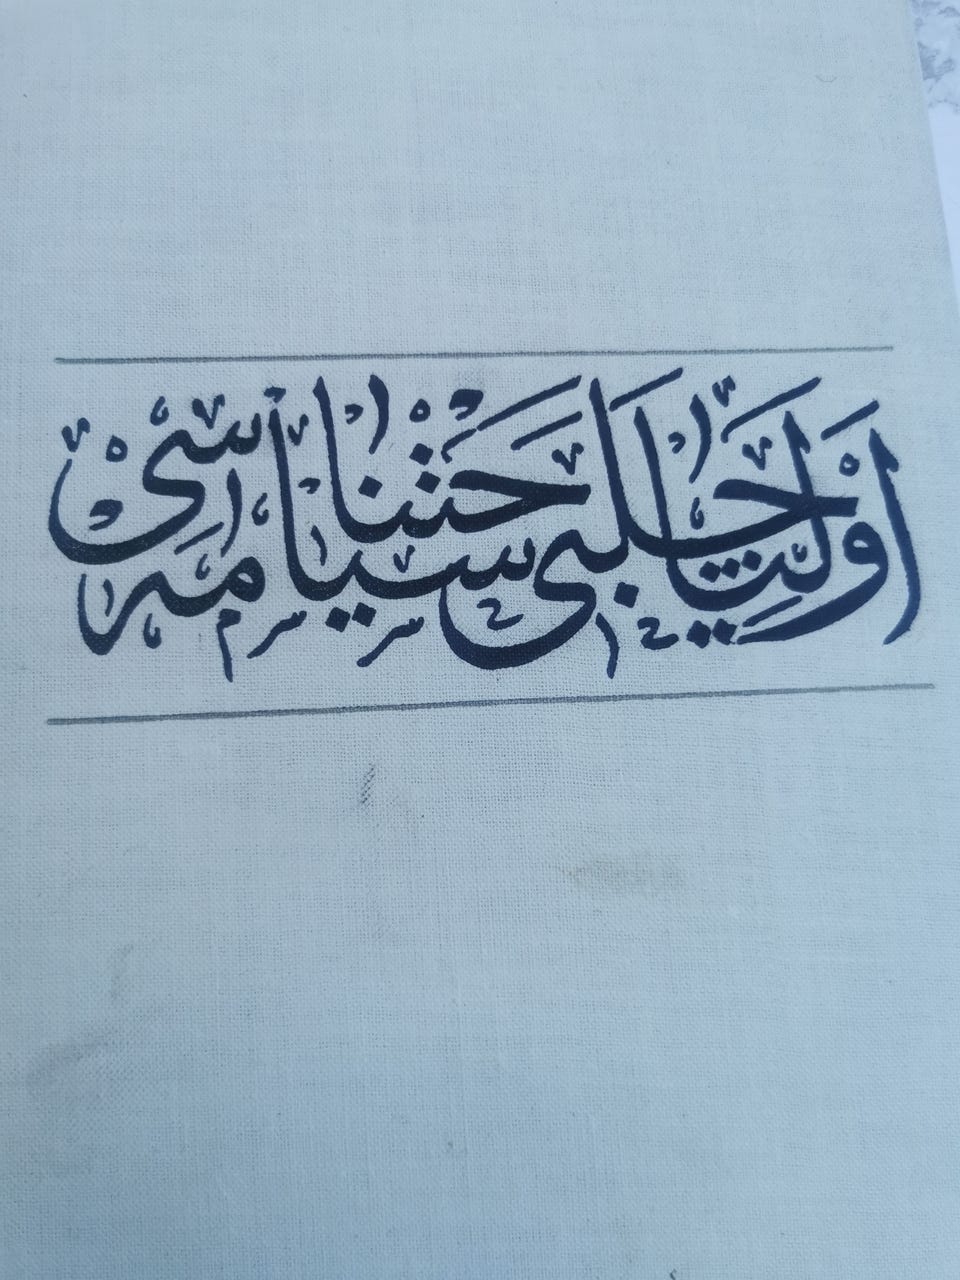 اوليا چلبى سياحتنامه سى